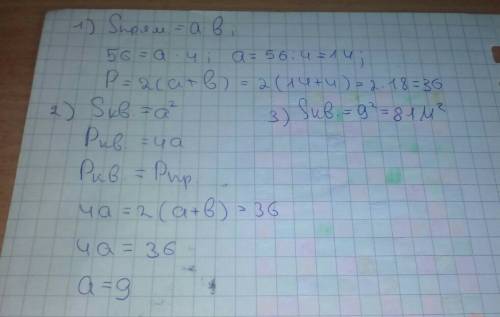 1) Sпрям = a b;
56 = a · 4; a = 56 : 4 = 14;
P = 2(a+b) = 2(14+4) = 2 · 18 = 36
2) Sкв. = a²
Pкв. = 4a
Pкв. = Pпр
4a = 2(a+b) = 36
4a = 36
a = 9
3) Sкв. = 9² = 81м²